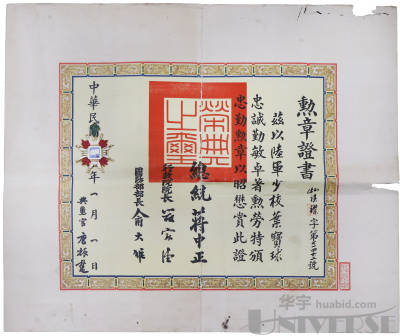 勲章證書
字第
號
茲以陸軍少校葉寶球
忠誠勤敏卓著勲勞特頒
忠勤勲章以昭懋賞此證
榮典之璽
總統 蔣中正
行政院院長
國防部部長 俞大維
中華民
年一月一日
典璽官
华宇 huabid.com
UNIVERSE